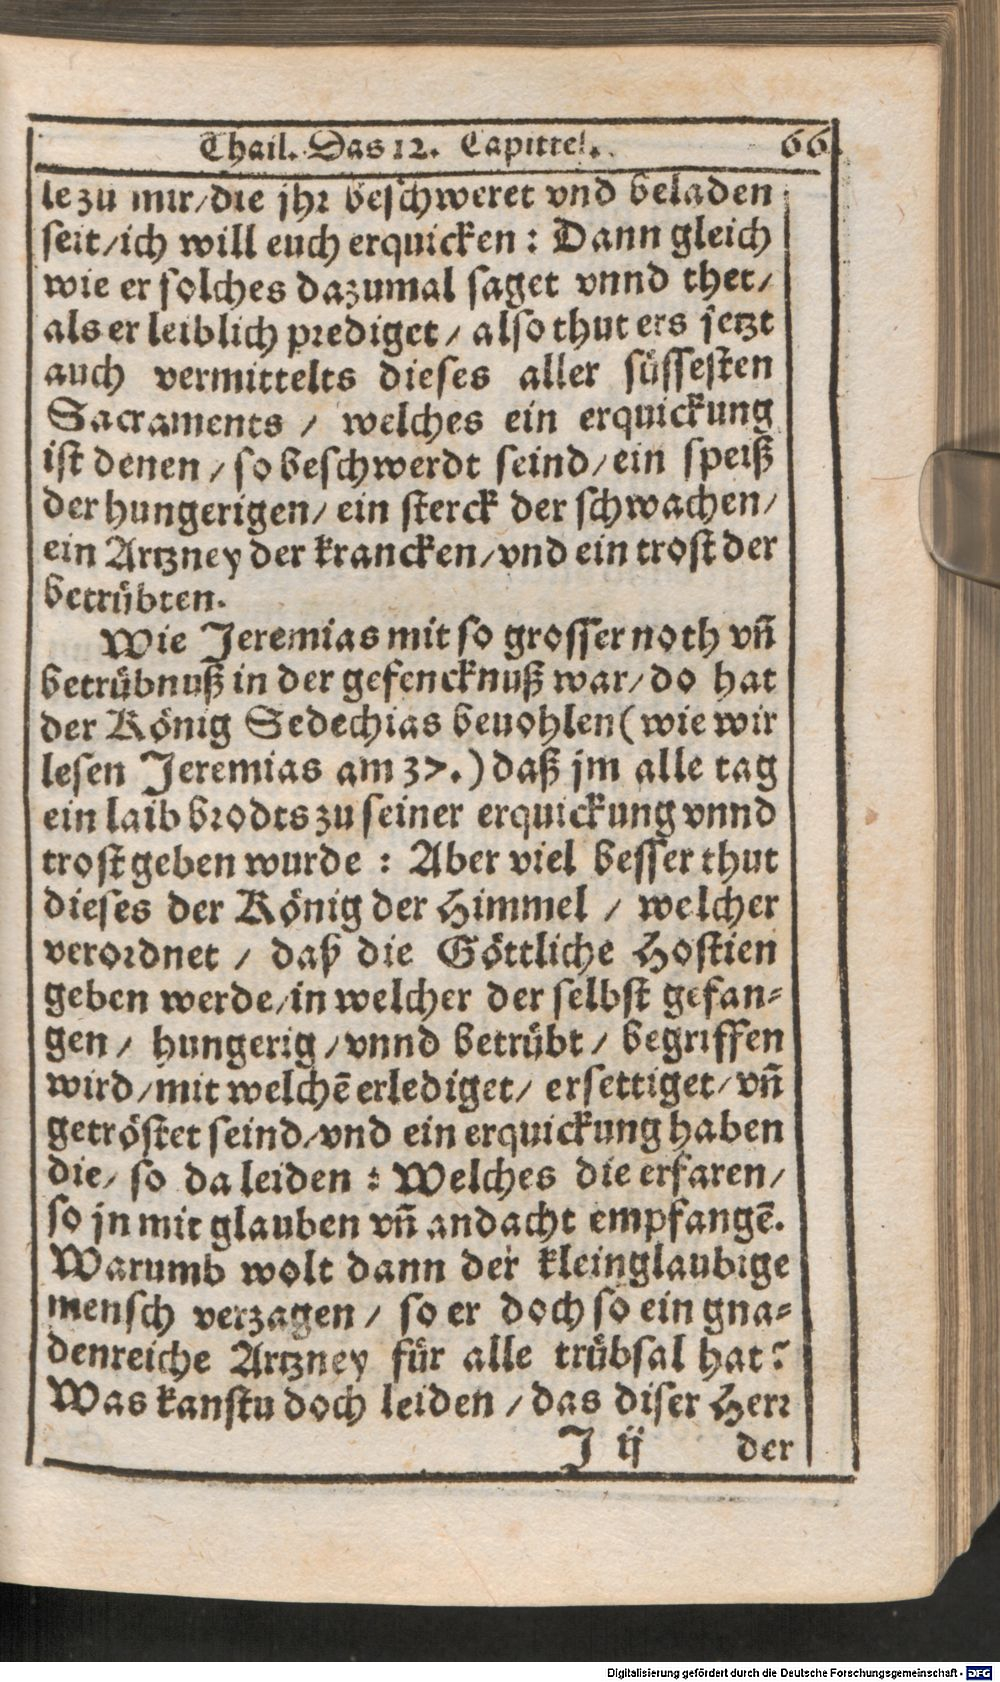 Thail. Das 12. Capittel. 66
le zu mir/die jhr beschweret vnd beladen
seit/ich will euch erquicken: Dann gleich
wie er solches dazumal saget vnnd thet/
als er leiblich prediget/ also thut ers jetzt
auch vermittelts dieses aller süssesten
Sacraments / welches ein erquickung
ist denen/so beschwerdt seind/ein speiß
der hungerigen/ ein sterck der schwachen/
ein Artzney der krancken/vnd ein trost der
betrübten.
Wie Jeremias mit so grosser noth vñ
betrübnuß in der gefencknuß war/do hat
der König Sedechias beuohlen (wie wir
lesen Jeremias am 37.) daß jm alle tag
ein laib brodts zu seiner erquickung vnnd
trost geben wurde : Aber viel besser thut
dieses der König der Himmel / welcher
verordnet / daß die Göttliche Hostien
geben werde/in welcher der selbst gefan-
gen/ hungerig/vnnd betrübt/ begriffen
wird/mit welchē erlediget/ ersettiget/vñ
getröstet seind/vnd ein erquickung haben
die/ so da leiden : Welches die erfaren/
so jn mit glauben vñ andacht empfangē.
Warumb wolt dann der kleinglaubige
mensch verzagen/ so er doch so ein gna-
denreiche Artzney für alle trübsal hat?
Was kanstu doch leiden/das diser Herr
J ij der
Digitalisierung gefördert durch die Deutsche Forschungsgemeinschaft - DFG